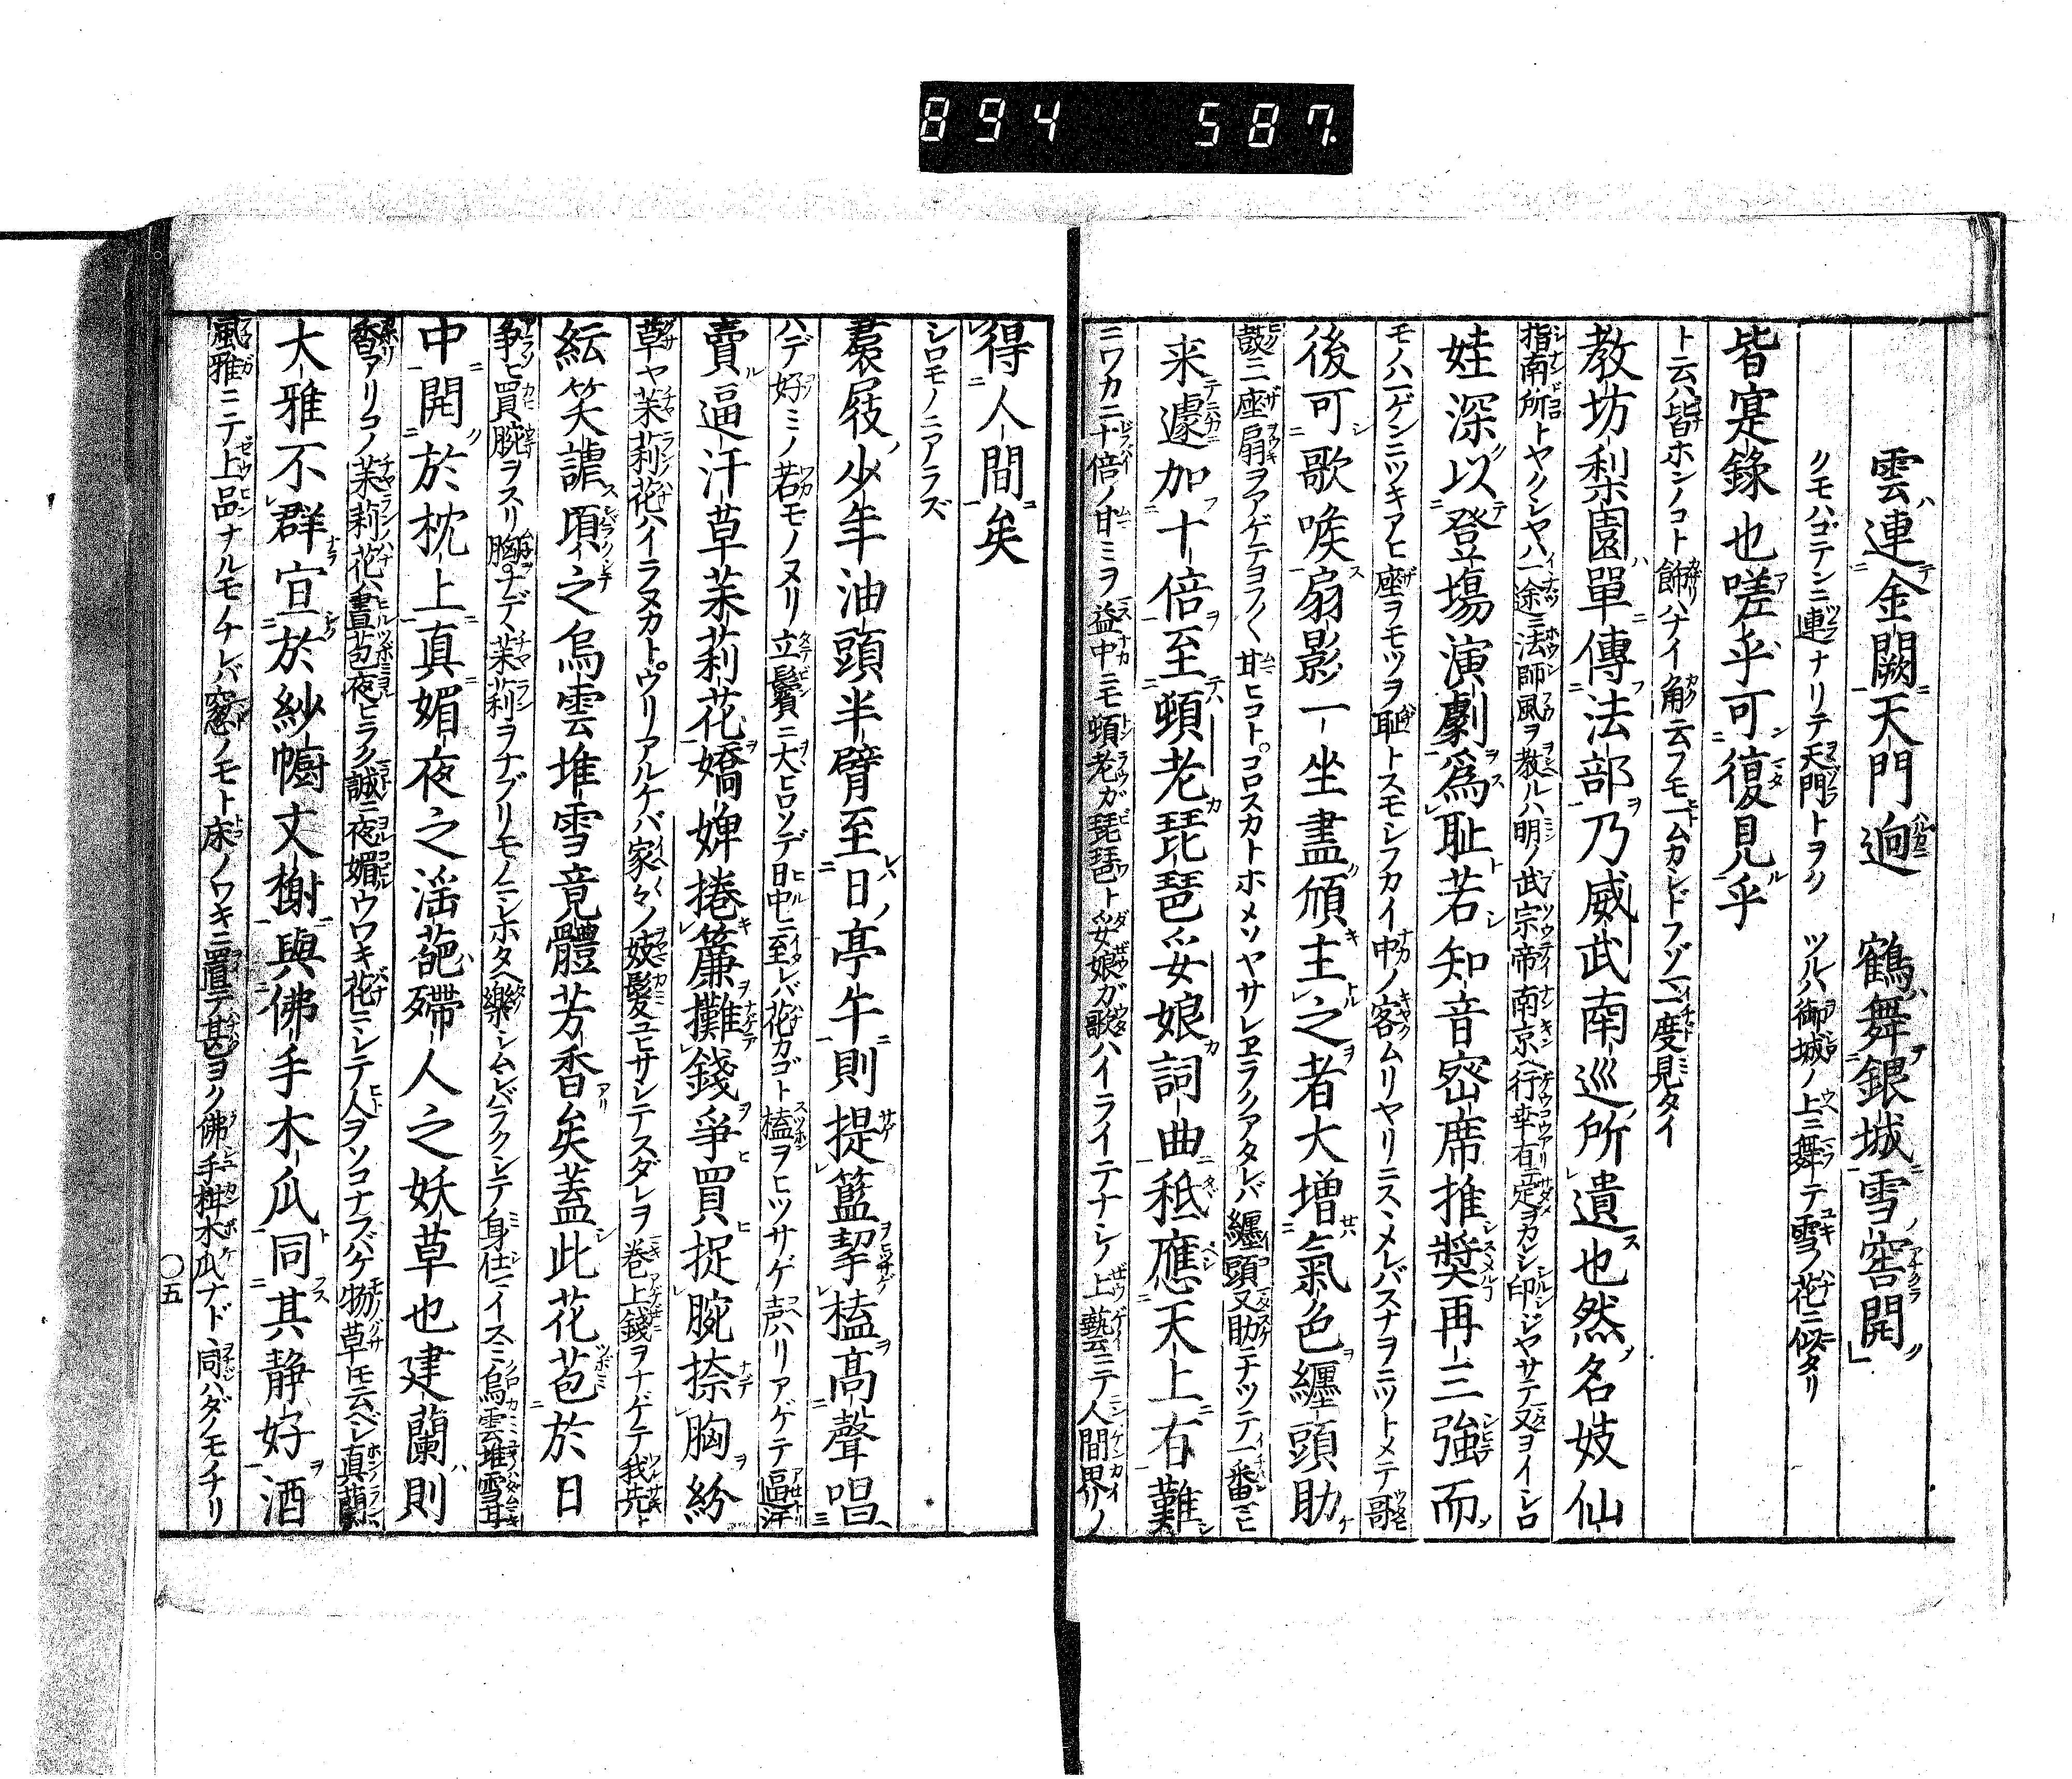 894 587.
雲連金闕天門逈 鶴舞銀城雪窖開」
クモハゴテンニ連ナリテ天門トヲク ツルハ御城ノ上ニ舞テ雪ノ花ニ似タリ
皆寔錄也嗟乎可復見乎
ト云ハ皆ホンノコト飾ハナイ角云フモ一ムカシドフゾ一度見タイ
教坊梨園單傳法部乃威武南巡所遺也然名妓仙
指南所トヤクシヤハ一途ニ法師風ヲ教ルハ明ノ武宗帝南京ヘ行幸有テ定ヲカレシ印シジヤサテ又ヨイシロ
娃深以登塲演劇爲耻若知音密席推奬再三強而
モノハゲンニツキアヒ座ヲモツヲ耻トスモシフカイ中ノ客ムリヤリニスヽメレバスナヲニツトメテ歌
後可歌喉扇影一坐盡傾主之者大増氣色纏頭助
鼓ニ座扇ヲアゲテヨフ〱甘ヒコト。コロスカトホメソヤサレヱラクアタレバ纏頭又助ニテツテ一番ニヒ
来遽加十倍至頓老琵琶妥娘詞曲秪應天上有難
ニワカニ十倍ノ甘ミヲ益中ニモ頓老ガ琵琶ト妥娘ガ歌ハイライテナシノ上藝ニテ人間界ノ
得人間矣
シロモノニアラズ
裠屐少年油頭半臂至日亭午則提籃挈榼高聲唱
ハデ好ミノ若モノヌリ立鬢ニ大ヒロソデ日中ニ至レバ花カゴト榼ヲヒツサゲ声ハリアゲテ逼汗
賣逼汗草茉莉花嬌婢捲簾攤錢爭買捉腕捺胸紛
草ヤ茉莉花ハイラヌカト。ウリアルケバ家々ノ妓髪ユヒサシテスダレヲ巻上錢ヲナゲテ我先ト
紜笑謔頃之烏雲堆雪竟體芳香矣蓋此花苞於日
爭ヒ買腕ヲスリ胸ナデヽ茉莉ヲナブリモノニシホタヘ樂シムシバラクシテ身仕マイスミ烏雲堆雪耳
中開於枕上真媚夜之淫葩殢人之妖草也建蘭則
香アリコノ茉莉花ハ晝苞夜ヒラク誠ニ夜媚ウワキ花ニシテ人ヲソコナフバケ物草モ云ベシ真蘭
大雅不群宜於紗幮文榭與佛手木瓜同其静好酒
風雅ニテ上品ナルモノナレバ窓ノモト床ノワキニ置テ甚ヨク佛手柑木瓜ナドヽ同ハダノモノナリ
〇五